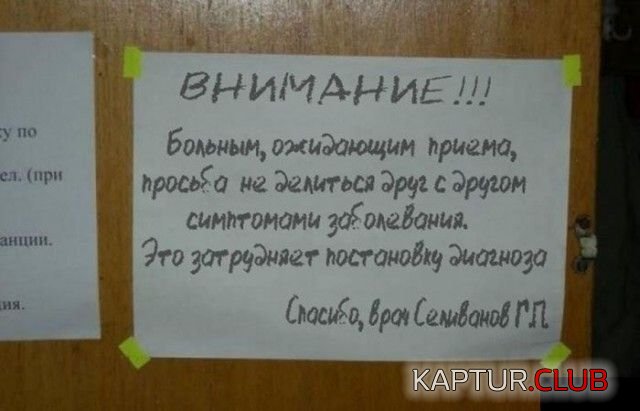 ВНИМАНИЕ!!!
Больным, ожидающим приема,
просьба не делиться друг с другом
симптомами заболевания.
Это затрудняет постановку диагноза
Спасибо, врач Селиванов Г.П.
у по
ел. (при
анции.
ия.
KAPTUR.CLUB